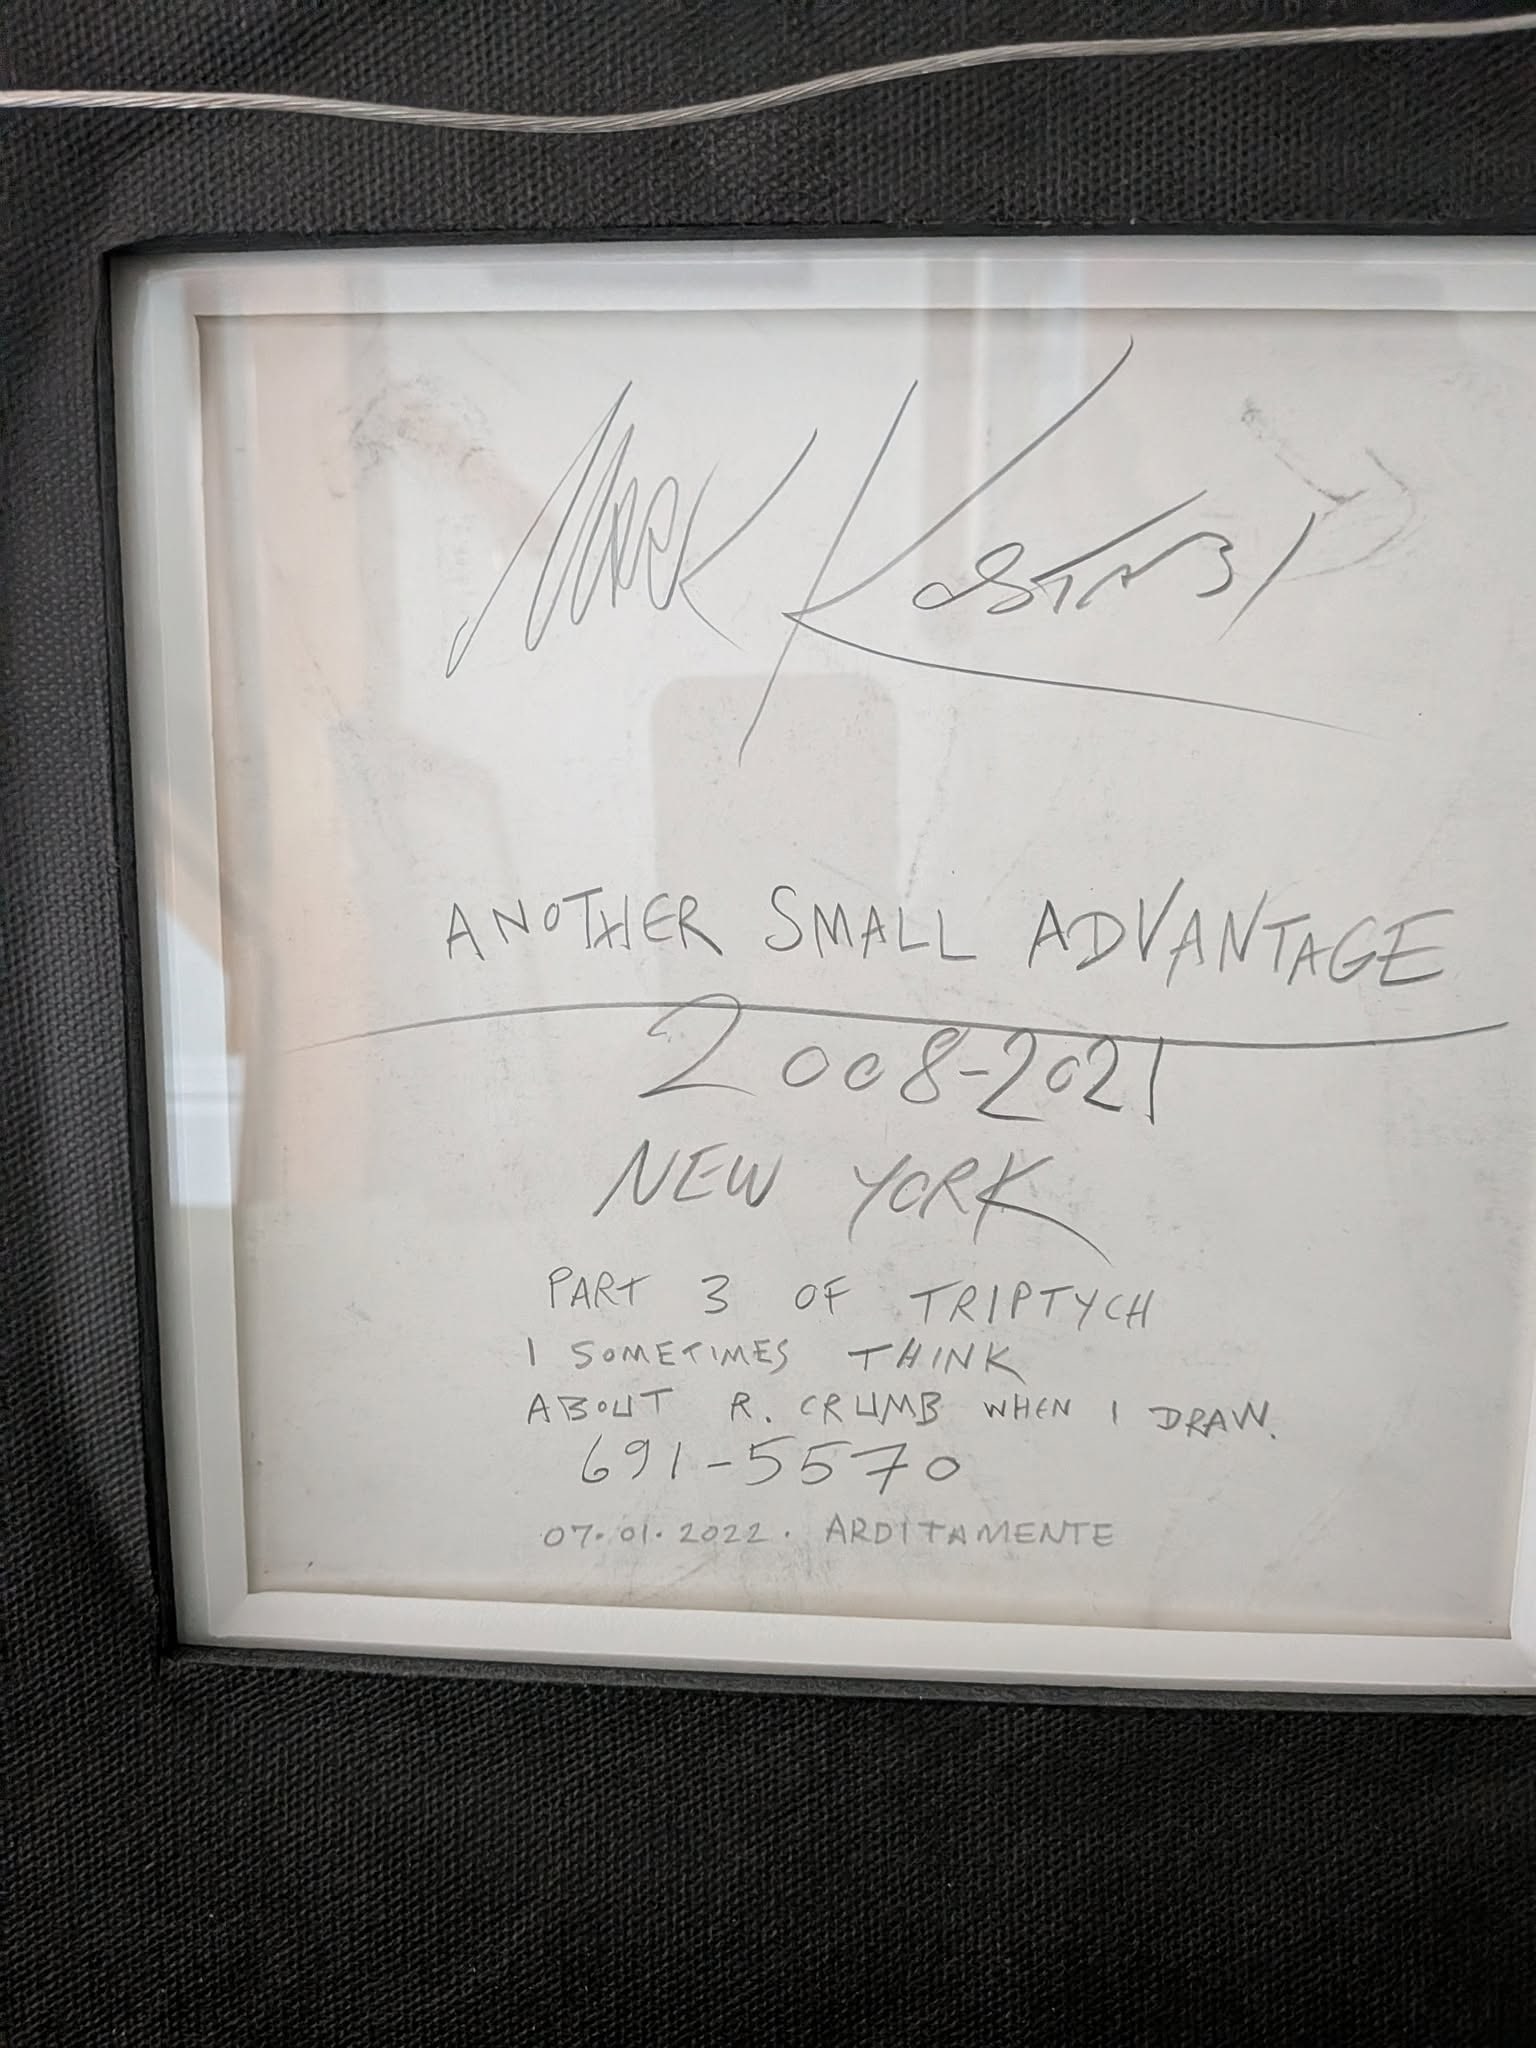 Mark Kostabi
ANOTHER SMALL ADVANTAGE
2008-2021
NEW YORK
PART 3 OF TRIPTYCH
I SOMETIMES THINK
ABOUT R. CRUMB WHEN I DRAW.
691-5570
07.01.2022. ARDITAMENTE